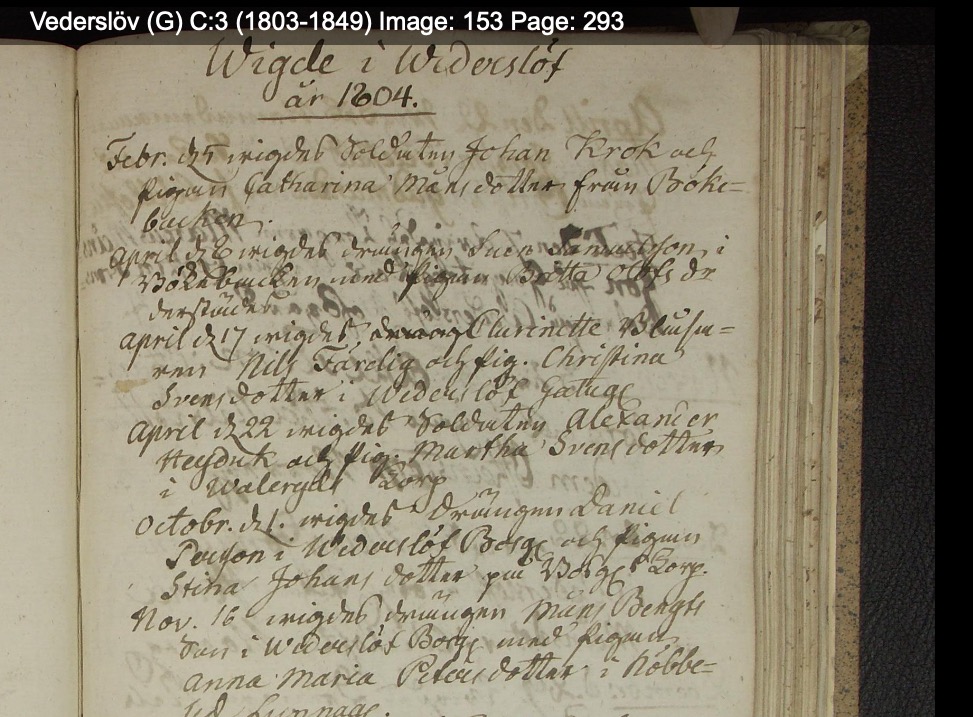 Vederslöv (G) C:3 (1803-1849) Image: 153 Page: 293
Wigde i Wederslöf
år 1804.
Febr. d. 5 wigdes Soldaten Johan Krok och
pigan Catharina Måns dotter från Böke=
backen.
April d. 8 wigdes drängen Sven Samuelsson i
Bökebacken med pigan Botta Olofs dr
derstädes
April d. 17 wigdes Clarinette Blåsa=
ren Nils Färdig och pig. Christina
Svens dotter i Wederslöf
April d. 22 wigdes Soldaten Alexander
Heyduk och pig. Martha Svens dotter
i Torp
Octobr. d. 1. wigdes Drängen Daniel
i Wederslöf och pigan
Stina Johans dotter på Torp.
Nov. 16 wigdes drängen Måns Bengts
Son i Wederslöf med pigan
Anna Maria Peters dotter i Nöbbe=